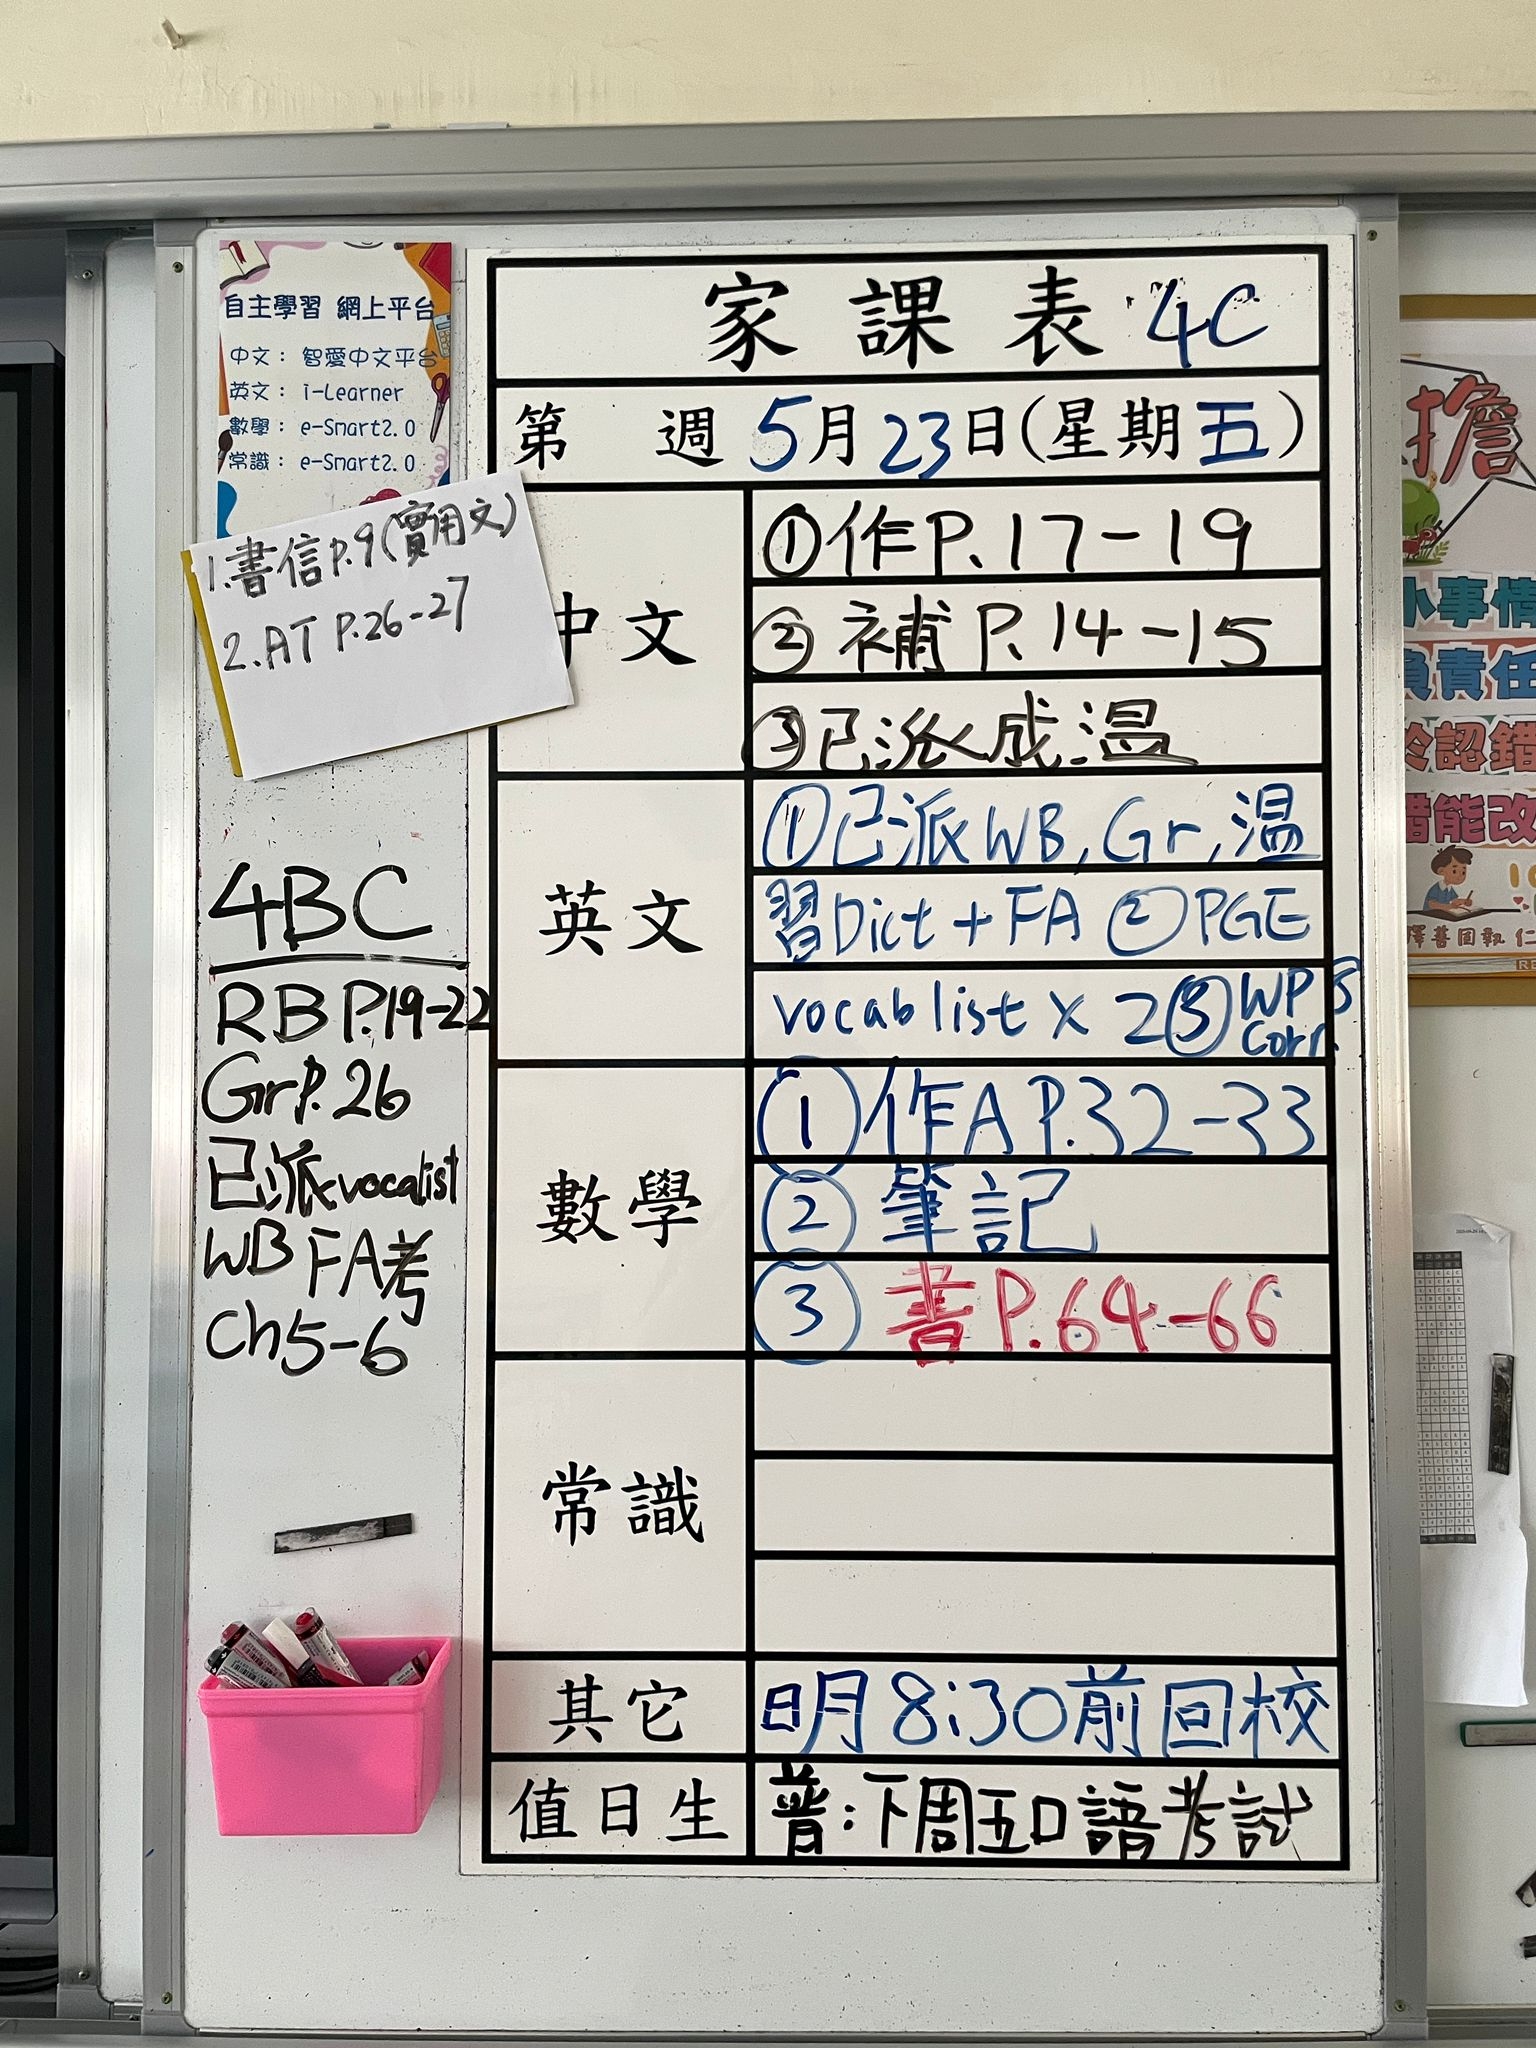 自主學習 網上平台
中文： 智愛中文平台
英文： i-Learner
數學： e-Smart2.0
常識： e-Smart2.0
1.書信p.9(實用文)
2.AT P.26-27
4BC
RB P.19-22
Gr P.26
已派vocalist
WB FA考
Ch5-6
家課表 4C
第 週 5月23日(星期五)
中文
①作P.17-19
②補P.14-15
③已派成溫
英文
①已派WB, Gr, 溫
習Dict + FA ②PGE
vocab list x 2 ③WP 8
Corr.
數學
①作A P.32-33
②筆記
③書P.64-66
常識
其它
明8:30前回校
值日生
普:下周五口語考試
擔
小事情
負責任
於認錯
錯能改